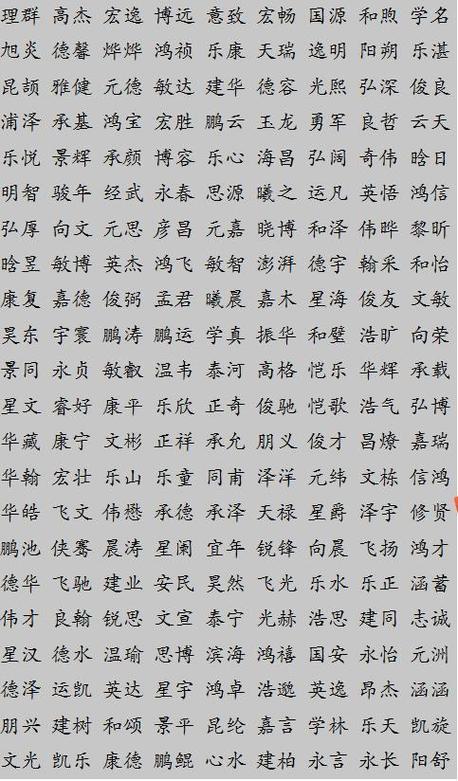 理群 高杰 宏逸 博远 意致 宏畅 国源 和煦 学名
旭炎 德馨 烨烨 鸿祯 乐康 天瑞 逸明 阳朔 乐湛
昆颉 雅健 元德 敏达 建华 德容 光熙 弘深 俊良
浦泽 承基 鸿宝 宏胜 鹏云 玉龙 勇军 良哲 云天
乐悦 景辉 承颜 博容 乐心 海昌 弘阔 奇伟 晗日
明智 骏年 经武 永春 思源 曦之 运凡 英悟 鸿信
弘厚 向文 元思 彦昌 元嘉 晓博 和泽 伟晔 黎昕
晗昱 敏博 英杰 鸿飞 敏智 澎湃 德宇 翰采 和怡
康复 嘉德 俊弼 孟君 曦晨 嘉木 星海 俊友 文敏
昊东 宇寰 鹏涛 鹏运 学真 振华 和璧 浩旷 向荣
景同 永贞 敏叡 温韦 泰河 高格 恺乐 华辉 承载
星文 睿好 康平 乐欣 正奇 俊驰 恺歌 浩气 弘博
华藏 康宁 文彬 正祥 承允 朋义 俊才 昌燎 嘉瑞
华翰 宏壮 乐山 乐童 同甫 泽洋 元纬 文栋 信鸿
华皓 飞文 伟懋 承德 承泽 天禄 星爵 泽宇 修贤
鹏池 侠骞 晨涛 星阑 宜年 锐锋 向晨 飞扬 鸿才
德华 飞驰 建业 安民 昊然 飞光 乐水 乐正 涵蓄
伟才 良翰 锐思 文宣 泰宁 光赫 浩思 建同 志诚
星汉 德水 温瑜 思博 滨海 鸿禧 国安 永怡 元洲
德泽 运凯 英达 星宇 鸿卓 浩邈 英逸 昂杰 涵涵
朋兴 建树 和颂 景平 昆纶 嘉言 学林 乐天 凯旋
文光 凯乐 康德 鹏鲲 心水 建柏 永言 永长 阳舒